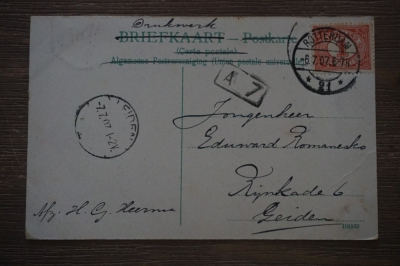 Drukwerk
BRIEFKAART — Postkarte
(Carte postale)
Algemeene Postvereeniging (Union postale universelle)
ROTTERDAM
6.7.07.6-7N
* 21 *
A 7
LEIDEN
7.7.07
Jongenheer
Eduward Romanesko
Rijnkade 6
Leiden
Afz. H. Cg. Heerma